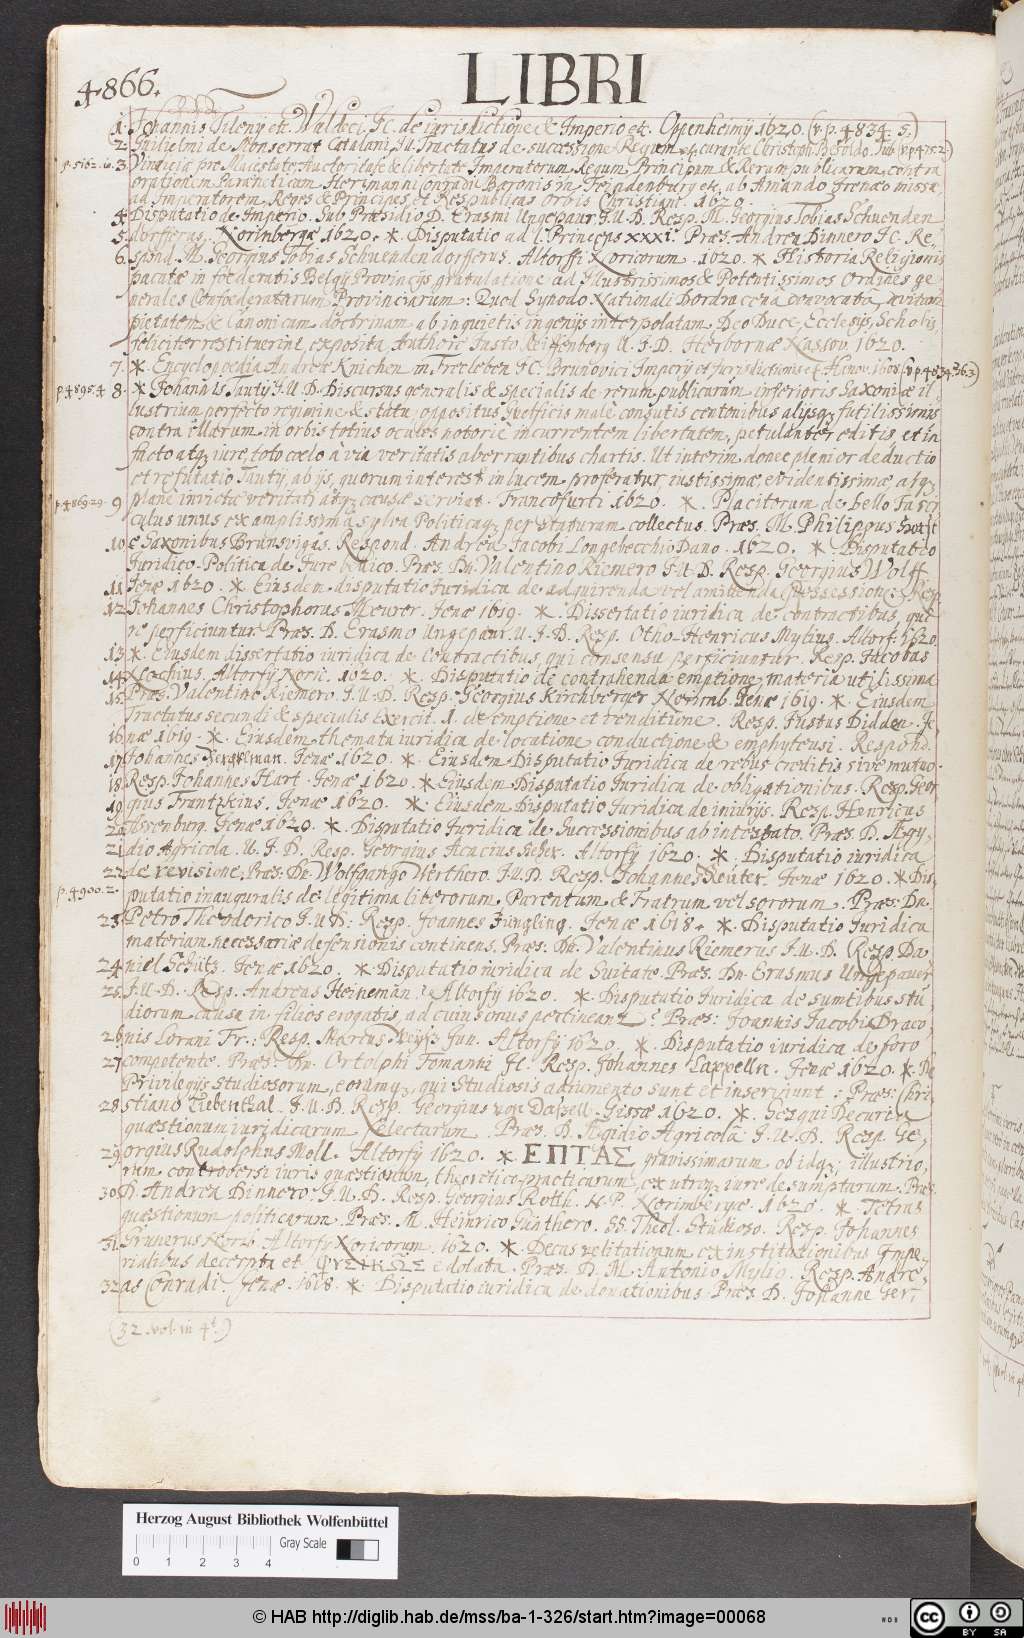 4866.
LIBRI
1. Johannis Tileny etc. Waldeci. JC. de iurisdictione & Imperio etc. Oppenheimij 1620. (v. p. 4834. 5.)
2. Guilielmi de Monserrat Catalani, JU. Tractatus de successione Regum curante Christoph. Besoldo. Tub. (v p 4752.)
3. Vindiciæ pro Maiestate, Auctoritate & libertate Imperatorum Regum Principum & Rerumpublicarum, contra
orationem Paræneticam Hermanni Conradi Baronis in Fridenburg etc. ab Amando Irenæo missæ
ad Imperatorem Reges & Principes, et Respublicas Orbis Christiani. 1620.
4. Disputatio de Imperio. Sub Præsidio D. Erasmi Ungepaur. J.U.D. Resp. M. Georgius Tobias Schuenden
5. dorfferus. Norimbergæ 1620. * Disputatio ad l. Princeps XXXI. Præs. Andrea Dinnero JC. Re-
6. spond. M. Georgius Tobias Schuendendorfferus. Altorffi Noricorum. 1620. * Historia Religionis
pacatæ in foederatis Belgij Provincijs gratulatione ad Illustrissimos & Potentissimos Ordines ge-
nerales Confoederatarum Provinciarum: Quod Synodo Nationali Dordracena convocata, avitam
pietatem & Canonicam doctrinam ab inquietis ingenijs interpolatam, Deo Duce, Ecclesijs, Scholis
feliciter restituerint, exposita Authore Justo Reiffenberg U.J.D. Herbornæ Nassov. 1620.
7. * Encyclopædia Andreæ Knichen in Trecleben JC. Brunovici Imperij et Jurisdictionis etc. Hanov. 1608. (v p. 4834. 363.)
p 4895. 4 8. * Johannis Tautij J.U.D. Discursus generalis & specialis de rerum publicarum inferioris Saxoniæ il-
lustrium perfecto regimine & statu, oppositus inefficis male consutis centonibus alijsq; futilissimis
contra illarum in orbis totius oculos notoriè incurrentem libertatem, petulanter editis, et in
facto atq; iure, toto coelo à via veritatis aberrantibus chartis. Ut interim donec plenior deductio
et refutatio Tautij, ab ijs, quorum interest, in lucem proferatur, iustissimæ evidentissimæ atq;
p 4869. 29. 9 planè invictæ veritati atq; causæ serviat. Francofurti 1620. * Placitorum de bello Fasci-
culus unus ex amplissima sylva Politicaq; per staturam collectus. Præs. M. Philippus
10. è Saxonibus Brunsvigas. Respond. Andrea Jacobi Longebecchio Dano. 1620. * Disputatio
Juridico-Politica de Jure bellico. Præs. Dn. Valentino Riemero J.U.D. Resp. Georgius Wolff
11 Jenæ 1620. * Eiusdem disputatio Juridica de adquirenda vel amittenda possessione. Resp.
12 Johannes Christophorus Mewer. Jenæ 1619. * Dissertatio iuridica de contractibus, qui
re perficiuntur Præs. D. Erasmo Ungepaur. U.J.D. Resp. Otho-Henricus Mylius. Altorf. 1620.
13 * Eiusdem dissertatio iuridica de Contractibus, qui consensu perficiuntur. Resp. Jacobus
14 Kochius. Altorfij Noric. 1620. * Disputatio de contrahenda emptione, materia utilissima
15 Præs. Valentino Riemero. J.U.D. Resp. Georgius Kirchberger Norimb. Jenæ 1619. * Eiusdem
Tractatus secundi & specialis Exercit. 1. de emptione et venditione. Resp. Justus Didden. Je-
16 næ 1619. * Eiusdem themata iuridica de locatione conductione & emphyteusi. Respond.
17 Johannes Kerckeman. Jenæ 1620. * Eiusdem Disputatio Juridica de rebus creditis sive mutuo.
18 Resp. Johannes Hart. Jenæ 1620. * Eiusdem Disputatio Juridica de obligationibus. Resp. Geor-
19 gius Frantzkius. Jenæ 1620. * Eiusdem Disputatio Juridica de iniurijs. Resp. Henricus
20 Assenburg. Jenæ 1620. * Disputatio Juridica de Successionibus ab intestato. Præs. D. Ægy-
21 dio Agricola. U.J.D. Resp. Georgius Acacius Altorfij 1620. * Disputatio iuridica
22 de revisione, Præs. Dn. Wolfgango Werthero. J.U.D. Resp. Johannes Reuter. Jenæ 1620. * Dis-
p. 4900. 2. putatio inauguralis de legitima liberorum, Parentum & Fratrum vel sororum. Præs. Dn.
23 Petro Theoderico J.U.D: Resp. Joannes Jüngling. Jenæ 1618. * Disputatio Juridica
materiam necessariæ defensionis continens. Præs. Dn. Valentinus Riemerus J.U.D. Resp. Da-
24 niel Schütz. Jenæ 1620. * Disputatio iuridica de Suitate Præs. Dn. Erasmus Ungepaver
25 J.U.D. Resp. Andreas Heineman. Altorfij 1620. * Disputatio Juridica de sumtibus stu-
diorum causa in filios erogatis, ad cuius onus pertineant? Præs: Joannis Jacobi Draco-
26 nis Lorani Fr.: Resp. Marcus Weijß Jun. Altorfij 1620. * Disputatio iuridica de foro
27 competente. Præs: Dn. Ortolphi Fomanni JC. Resp. Johannes Cappelln. Jenæ 1620. * De
Privilegijs Studiosorum, eorumq; qui Studiosis adiumento sunt et inserviunt: Præs: Chri-
28 stiano Liebenthal. J.U.D. Resp. Georgius von Dassell. Gissæ 1620. * Sesqui Decuria
quæstionum iuridicarum selectarum. Præs. D. Ægidio Agricolâ J.U.D. Resp. Ge-
29 orgius Rudolphus Moll. Altorfij 1620. * ΕΠΤΑΣ gravissimarum ob idq; illustrio-
rum controversi iuris quæstionum, theoretico-practicarum, ex utroq; iure desumptarum. Præs.
30 D. Andrea Dinnero. J.U.D. Resp. Georgius Roth. N. P. Norimbergæ. 1620. * Tetras
quæstionum politicarum. Præs. M. Heinrico Günthero. SS. Theol. Studioso. Resp. Johannes
31. Grunerus Norib. Altorfij Noricorum. 1620. * Decas velitationum ex institutionibus Impe-
rialibus decerpta et ΦΥΣΙΚΩΣ edolata. Præs. D. M. Antonio Mylio. Resp. Andre-
32 as Conradi. Jenæ. 1618. * Disputatio iuridica de donationibus. Præs. D. Johanne Ger-
(32. vol. in 4t.)
Herzog August Bibliothek Wolfenbüttel
Gray Scale
0 1 2 3 4
© HAB http://diglib.hab.de/mss/ba-1-326/start.htm?image=00068
cc BY SA